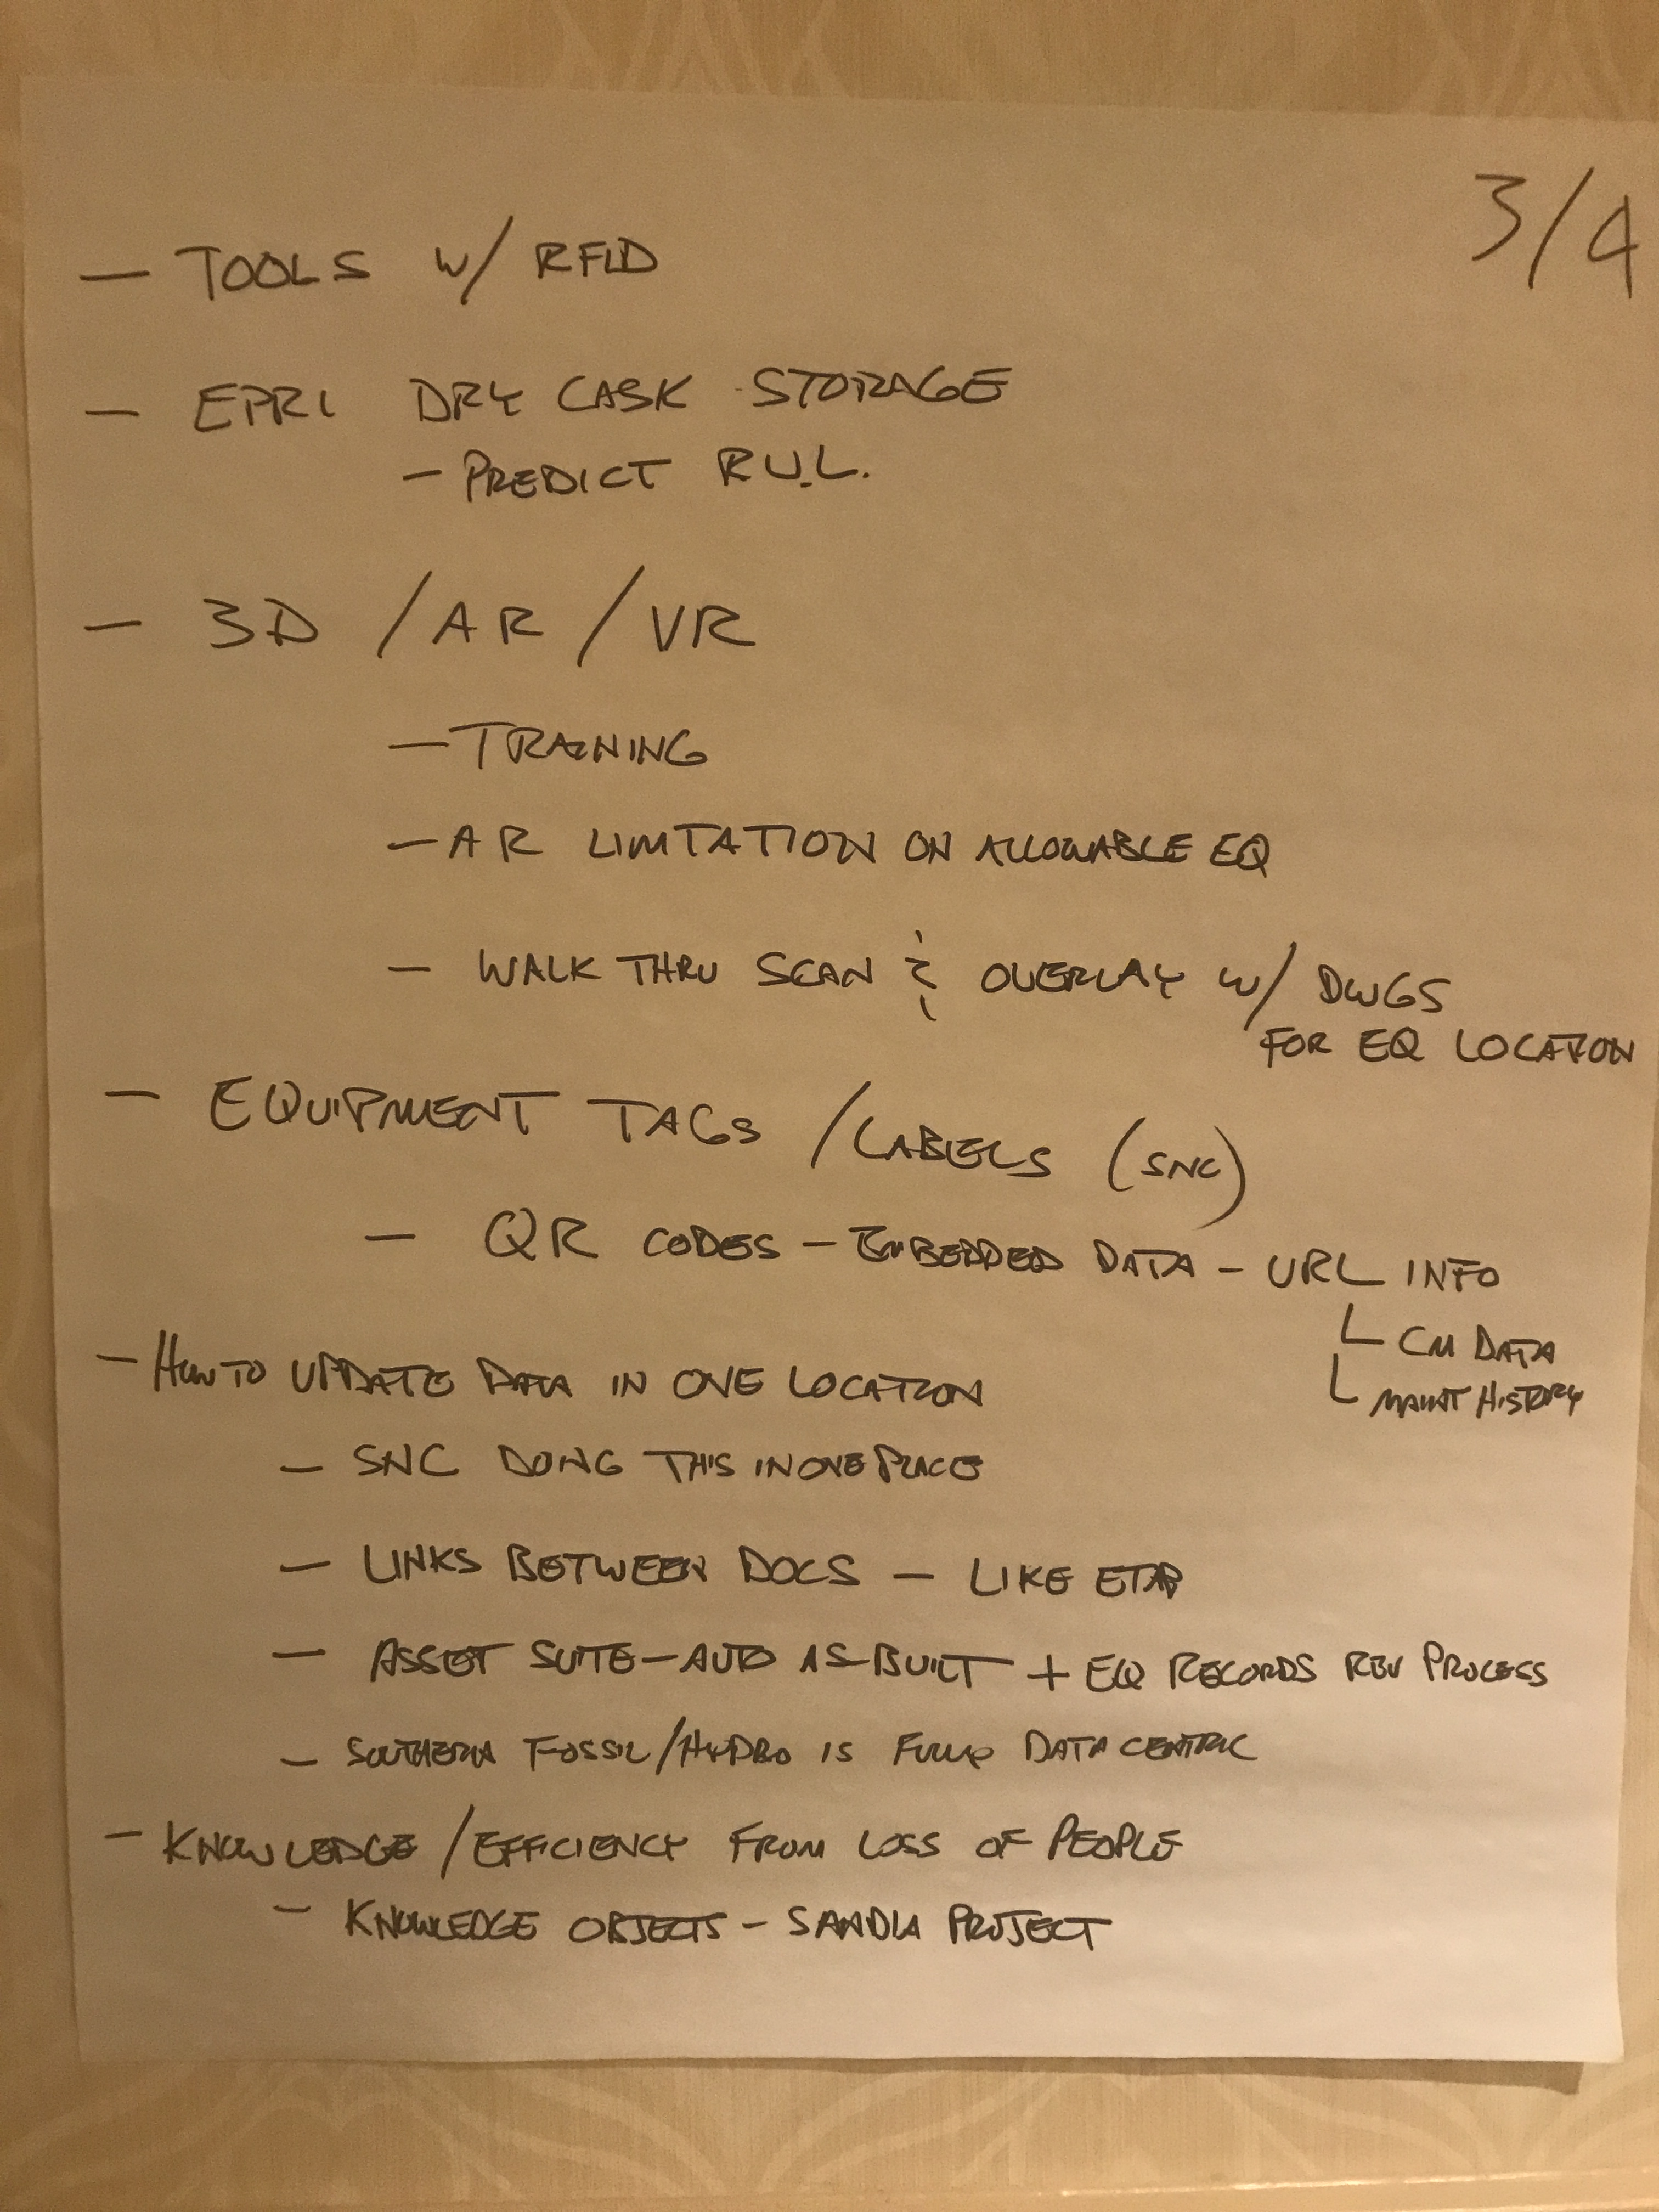 3/4
- TOOLS W/ RFID
- EPRI DRY CASK STORAGE
- PREDICT R.U.L.
- 3D / AR / VR
- TRAINING
- AR LIMTATION ON ALLOWABLE EQ
- WALK THRU SCAN & OVERLAY W/ DWGS
FOR EQ LOCATION
- EQUIPMENT TAGS / LABELS (SNC)
- QR CODES - EMBEDDED DATA - URL INFO
└ CM DATA
└ MAINT HISTORY
- HOW TO UPDATE DATA IN ONE LOCATION
- SNC DOING THIS IN ONE PLACE
- LINKS BETWEEN DOCS - LIKE ETAP
- ASSET SUITE - AUTO AS-BUILT + EQ RECORDS REV PROCESS
- SOUTHERN FOSSIL/HYDRO IS FULLY DATA CENTRIC
- KNOWLEDGE / EFFICIENCY FROM LOSS OF PEOPLE
- KNOWLEDGE OBJECTS - SANDIA PROJECT